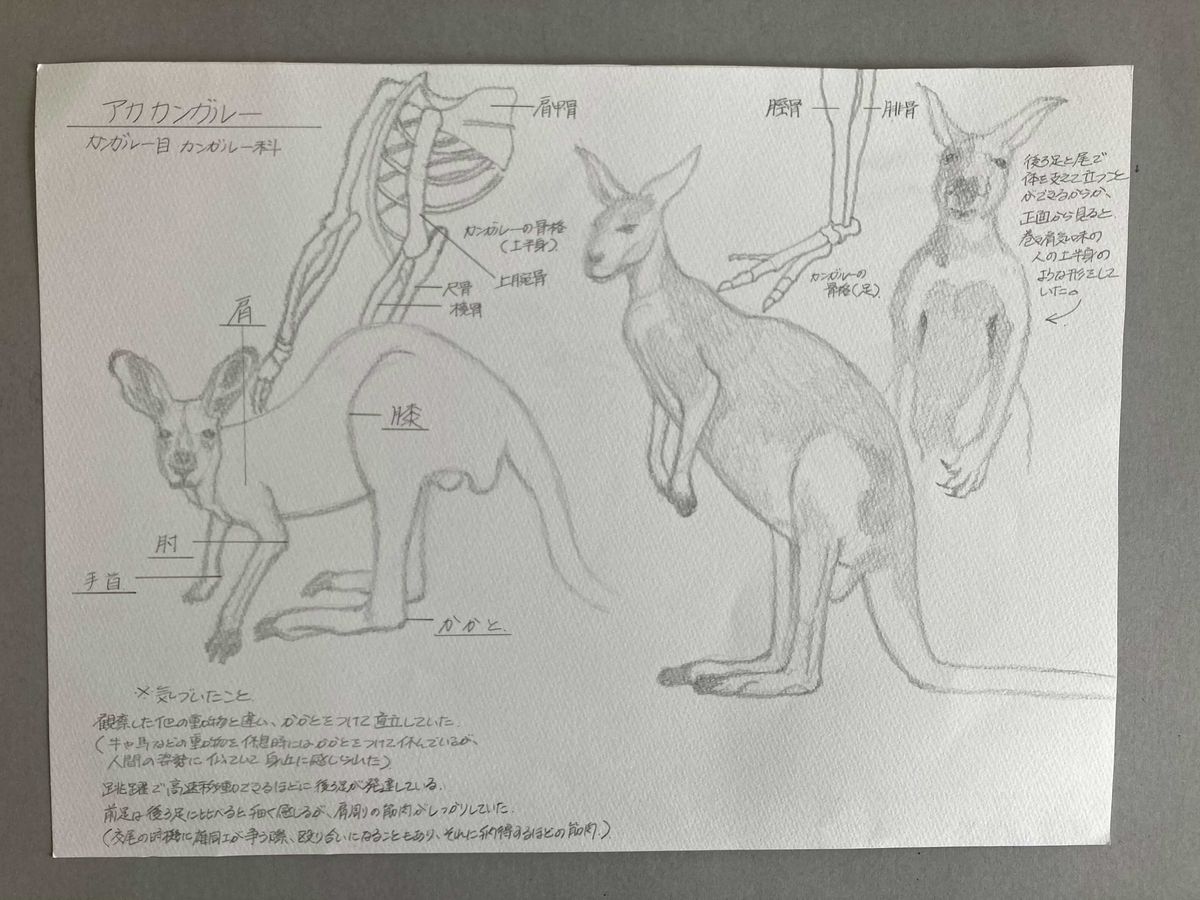 アカカンガルー
カンガルー目 カンガルー科
肩甲骨
カンガルーの骨格
(上半身)
上腕骨
尺骨
橈骨
脛骨
腓骨
カンガルーの
骨格(足)
後ろ足と尾で
体を支えて立つこと
ができるからか、
正面から見ると、
巻き肩気味の
人の上半身の
ような形をして
いた。
肩
膝
肘
手首
かかと
※気づいたこと
観察した他の動物と違い、かかとをつけて直立していた。
(牛や馬などの動物を休憩時にはかかとをつけて休んでいるが、
人間の姿勢に似ていて身近に感じられた)
跳躍で高速移動できるほどに後ろ足が発達している。
前足は後ろ足に比べると細く感じるが、肩周りの筋肉がしっかりしていた。
(交尾の時機に雄同士が争う際、殴り合いになることもあり、それに納得するほどの筋肉。)